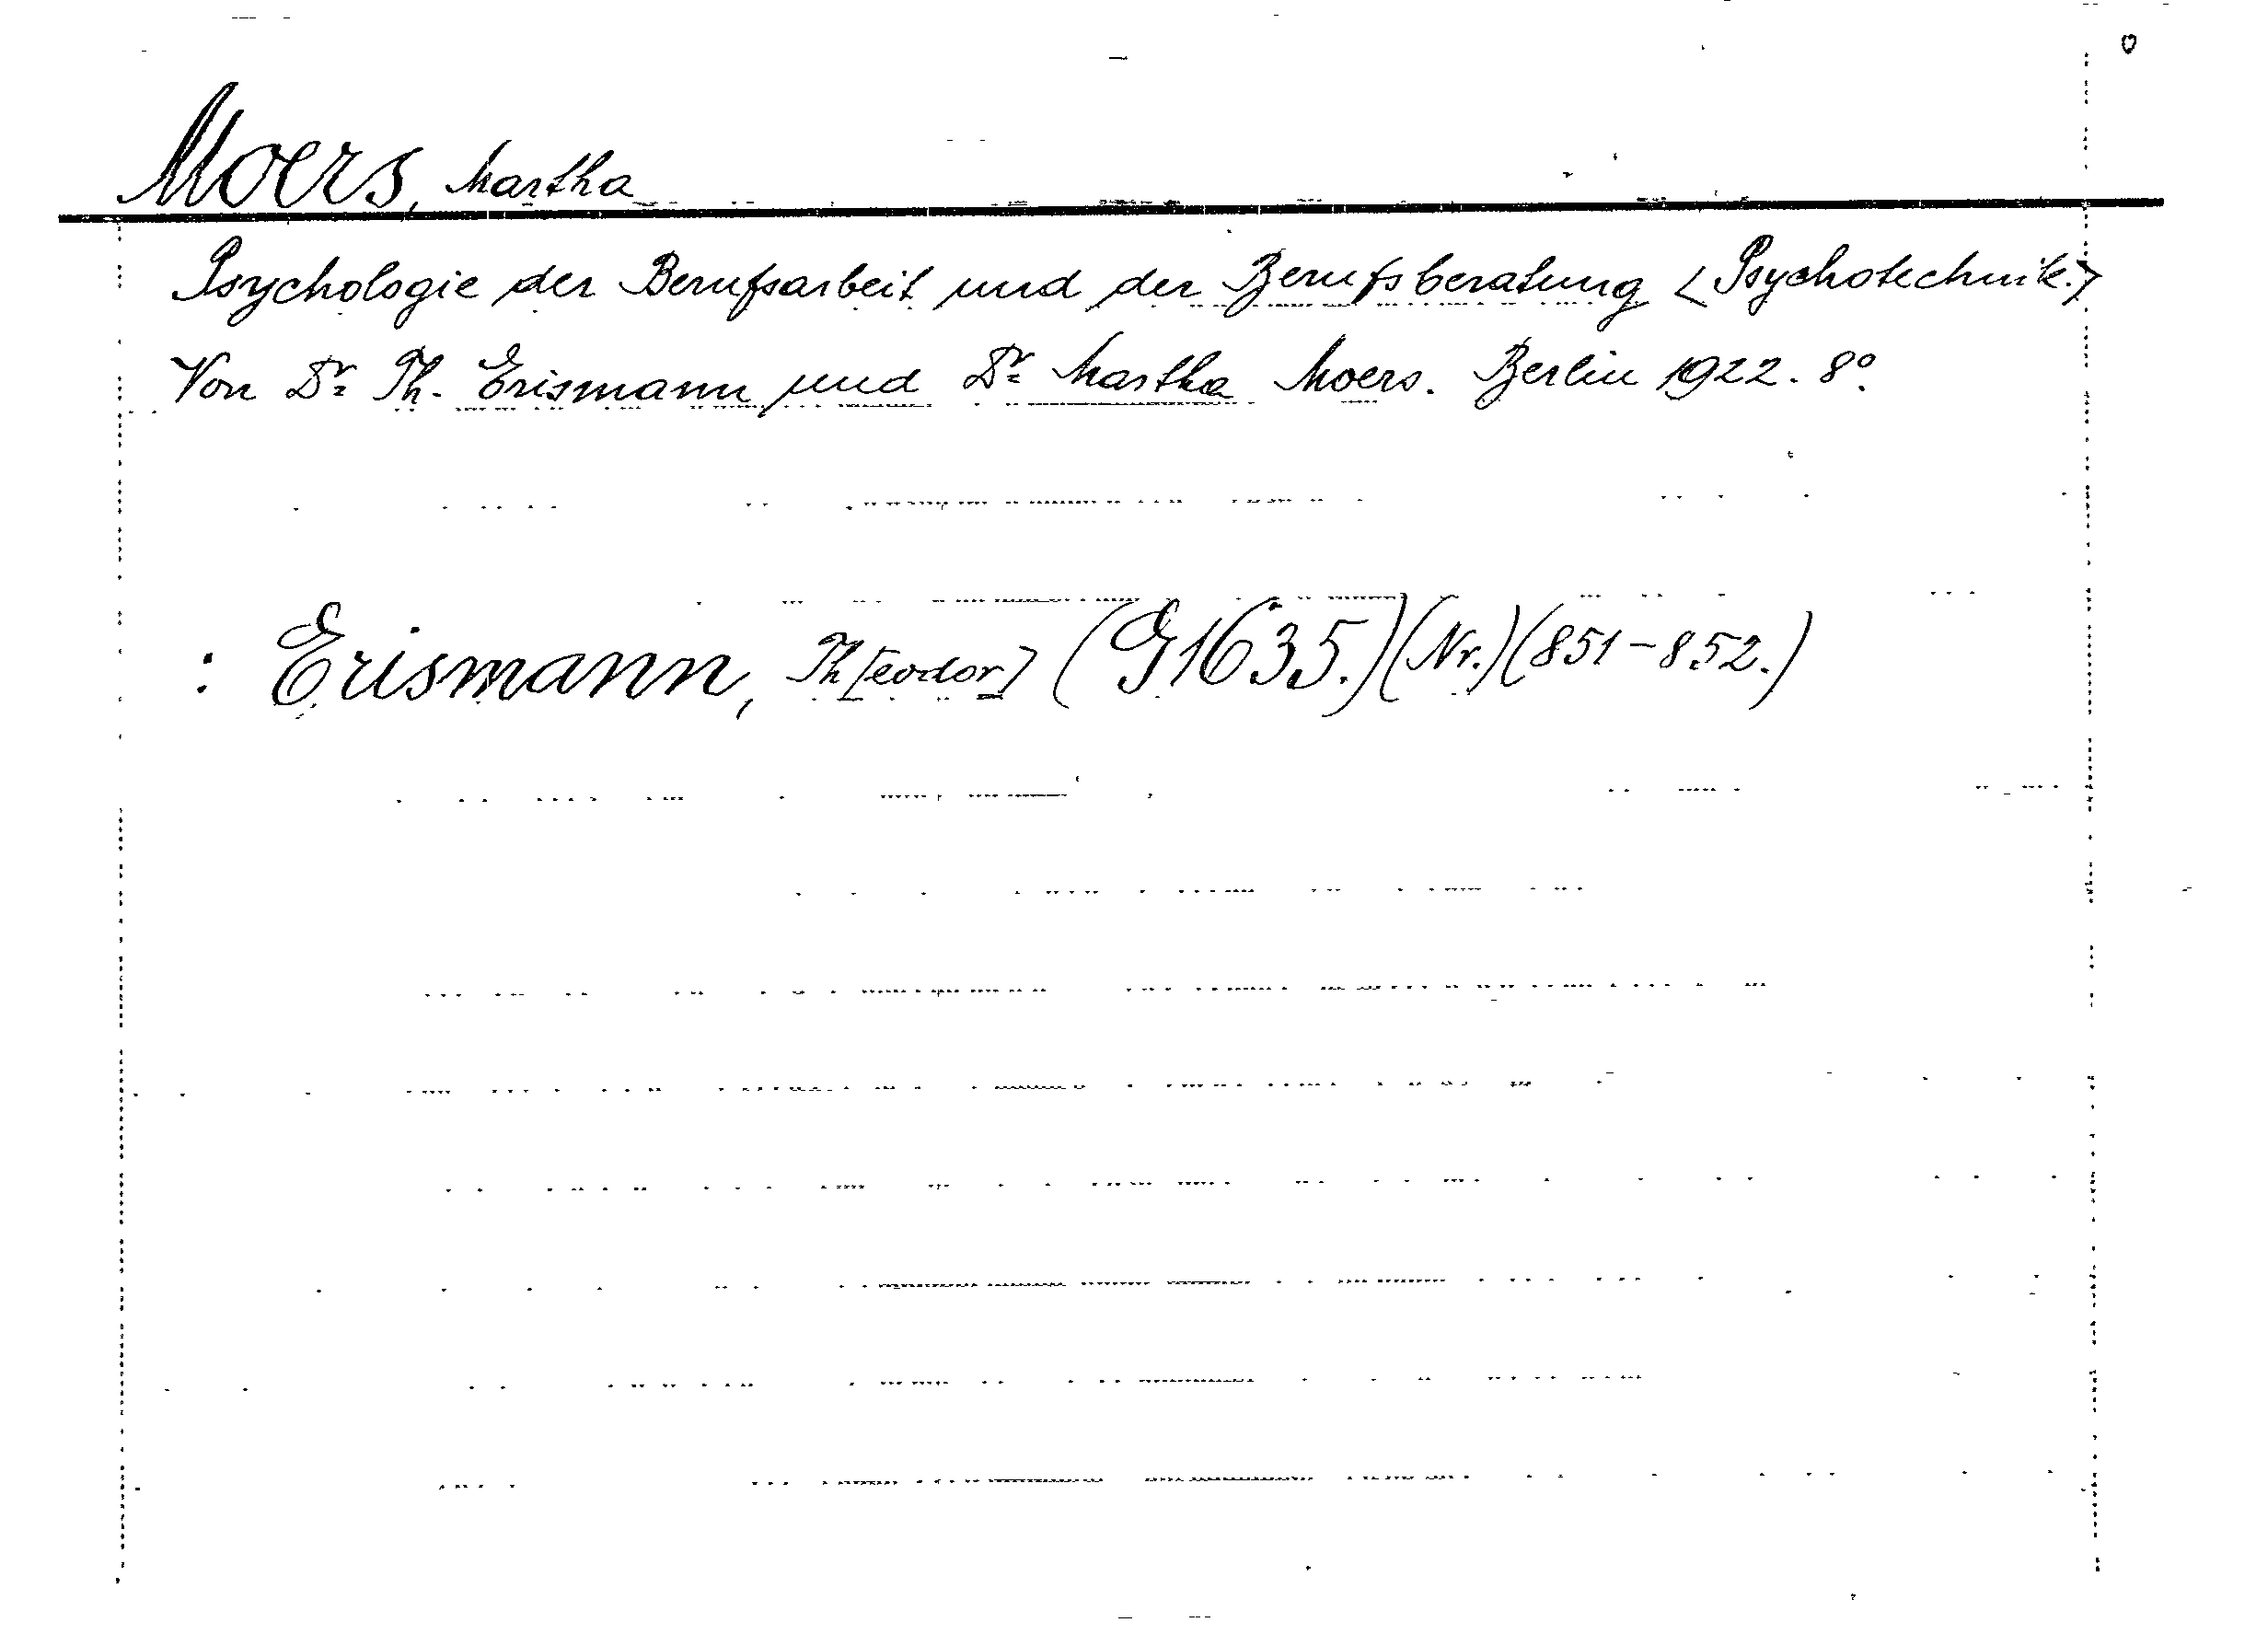 Moers, Martha
Psychologie der Berufsarbeit und der Berufsberatung <Psychotechnik.>
Von Dr. Th. Erismann und Dr. Martha Moers. Berlin 1922. 8°.
: Erismann, Th[eodor] (G1635.)(Nr.)(851-852.)